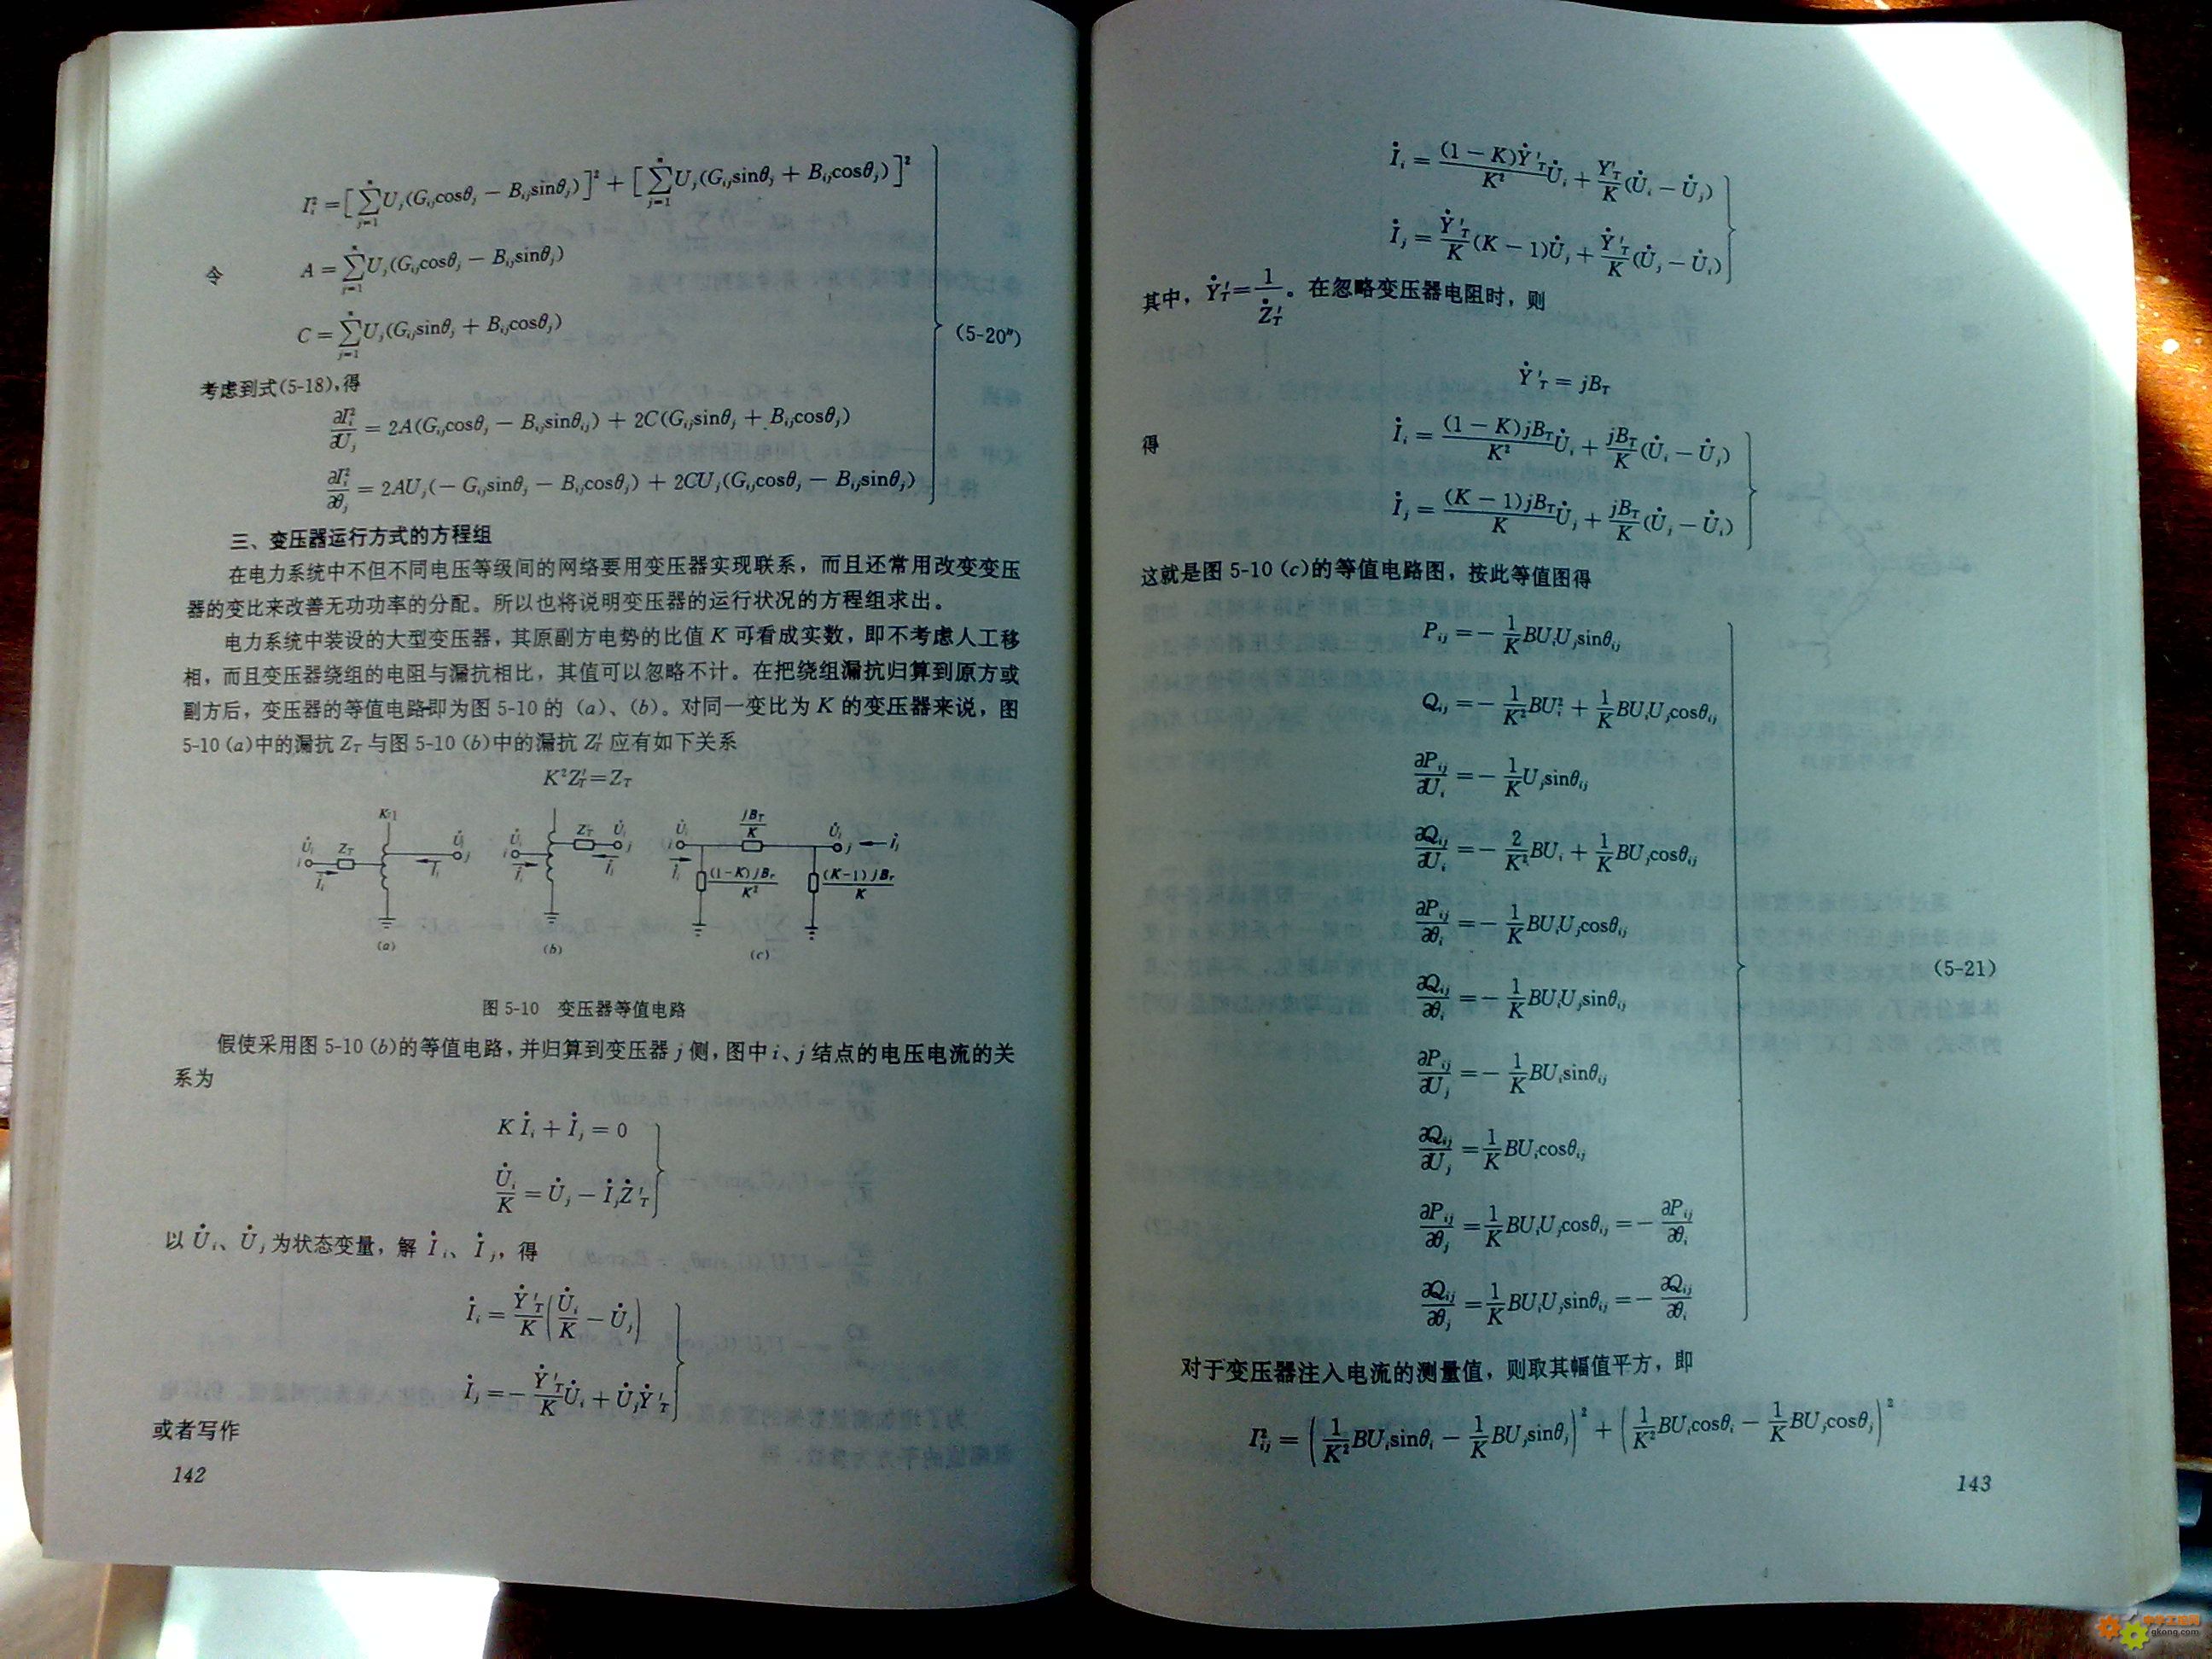 I²ᵢ = [∑ⁿⱼ₌₁Uⱼ(Gᵢⱼcosθⱼ − Bᵢⱼsinθⱼ)]² + [∑ⁿⱼ₌₁Uⱼ(Gᵢⱼsinθⱼ + Bᵢⱼcosθⱼ)]²
令 A = ∑ⁿⱼ₌₁Uⱼ(Gᵢⱼcosθⱼ − Bᵢⱼsinθⱼ)
C = ∑ⁿⱼ₌₁Uⱼ(Gᵢⱼsinθⱼ + Bᵢⱼcosθⱼ)
(5-20″)
考虑到式(5-18),得
∂I²ᵢ/∂Uⱼ = 2A(Gᵢⱼcosθⱼ − Bᵢⱼsinθᵢⱼ) + 2C(Gᵢⱼsinθⱼ + Bᵢⱼcosθⱼ)
∂I²ᵢ/∂θⱼ = 2AUⱼ(− Gᵢⱼsinθⱼ − Bᵢⱼcosθⱼ) + 2CUⱼ(Gᵢⱼcosθⱼ − Bᵢⱼsinθⱼ)
三、变压器运行方式的方程组
在电力系统中不但不同电压等级间的网络要用变压器实现联系，而且还常用改变变压
器的变比来改善无功功率的分配。所以也将说明变压器的运行状况的方程组求出。
电力系统中装设的大型变压器，其原副方电势的比值 K 可看成实数，即不考虑人工移
相，而且变压器绕组的电阻与漏抗相比，其值可以忽略不计。在把绕组漏抗归算到原方或
副方后，变压器的等值电路即为图 5-10 的 (a)、(b)。对同一变比为 K 的变压器来说，图
5-10 (a)中的漏抗 Z_T 与图 5-10 (b)中的漏抗 Z′_T 应有如下关系
K²Z′_T=Z_T
K:1
U̇ᵢ Z_T U̇ⱼ
i j
İᵢ İⱼ
(a)
U̇ᵢ Z_T U̇ⱼ
i j
İᵢ İⱼ
(b)
jB_T/K
U̇ᵢ U̇ⱼ
i j İⱼ
İᵢ (1−K)jB_T/K² (K−1)jB_T/K
(c)
图 5-10 变压器等值电路
假使采用图 5-10 (b)的等值电路,并归算到变压器 j 侧,图中 i、j 结点的电压电流的关
系为
K İᵢ + İⱼ = 0
U̇ᵢ/K = U̇ⱼ − İⱼŻ′_T
以 U̇ᵢ、U̇ⱼ 为状态变量，解 İᵢ、İⱼ，得
İᵢ = Ẏ′_T/K (U̇ᵢ/K − U̇ⱼ)
İⱼ = − Ẏ′_T/K U̇ᵢ + U̇ⱼẎ′_T
或者写作
142
İᵢ = (1 − K)Ẏ′_T/K² U̇ᵢ + Y′_T/K (U̇ᵢ − U̇ⱼ)
İⱼ = Ẏ′_T/K (K − 1)U̇ⱼ + Ẏ′_T/K (U̇ⱼ − U̇ᵢ)
其中，Ẏ′_T = 1/Ż′_T。在忽略变压器电阻时，则
Ẏ′_T = jB_T
得 İᵢ = (1 − K)jB_T/K² U̇ᵢ + jB_T/K (U̇ᵢ − U̇ⱼ)
İⱼ = (K − 1)jB_T/K U̇ⱼ + jB_T/K (U̇ⱼ − U̇ᵢ)
这就是图 5-10 (c)的等值电路图，按此等值图得
Pᵢⱼ = − 1/K BUᵢUⱼsinθᵢⱼ
Qᵢⱼ = − 1/K² BU²ᵢ + 1/K BUᵢUⱼcosθᵢⱼ
∂Pᵢⱼ/∂Uᵢ = − 1/K Uⱼsinθᵢⱼ
∂Qᵢⱼ/∂Uᵢ = − 2/K² BUᵢ + 1/K BUⱼcosθᵢⱼ
∂Pᵢⱼ/∂θᵢ = − 1/K BUᵢUⱼcosθᵢⱼ
∂Qᵢⱼ/∂θᵢ = − 1/K BUᵢUⱼsinθᵢⱼ
(5-21)
∂Pᵢⱼ/∂Uⱼ = − 1/K BUᵢsinθᵢⱼ
∂Qᵢⱼ/∂Uⱼ = 1/K BUᵢcosθᵢⱼ
∂Pᵢⱼ/∂θⱼ = 1/K BUᵢUⱼcosθᵢⱼ = − ∂Pᵢⱼ/∂θᵢ
∂Qᵢⱼ/∂θⱼ = 1/K BUᵢUⱼsinθᵢⱼ = − ∂Qᵢⱼ/∂θᵢ
对于变压器注入电流的测量值，则取其幅值平方，即
I²ᵢⱼ = (1/K² BUᵢsinθᵢ − 1/K BUⱼsinθⱼ)² + (1/K² BUᵢcosθᵢ − 1/K BUⱼcosθⱼ)²
143
gkong.com